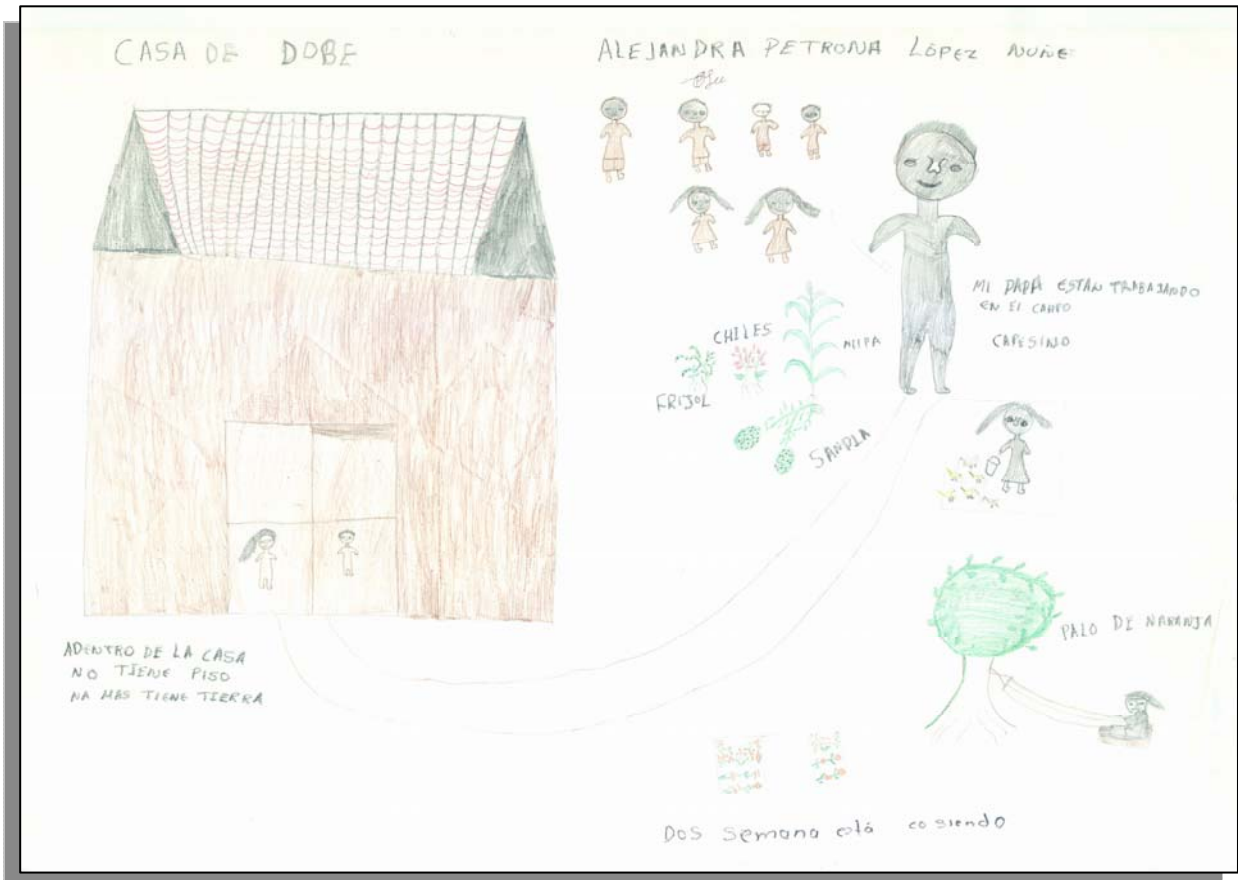 CASA DE DOBE
ALEJANDRA PETRONA LÓPEZ NUÑE
MI PAPÁ ESTÁN TRABAJANDO
EN EL CAMPO
CAPESINO
CHILES
MILPA
FRIJOL
SANDIA
PALO DE NARANJA
ADENTRO DE LA CASA
NO TIENE PISO
NA MAS TIENE TIERRA
Dos semana está cosiendo